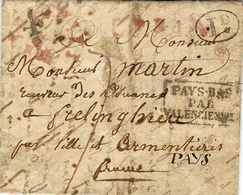 A Monsieur
Monsieur Martin
receveur des Douanes
PAYS-BAS
PAR
VALENCIENNES
a frelinghien
par lille et armentieres
PAYS